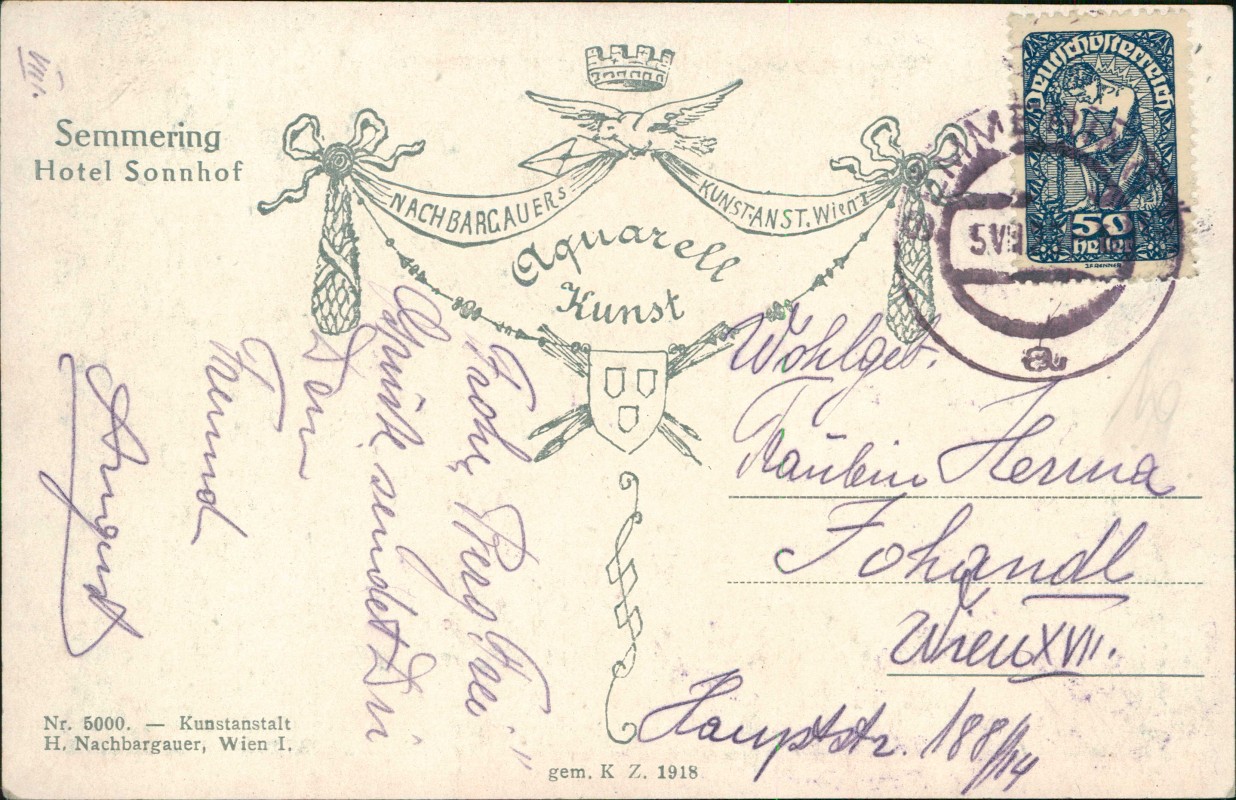 VIII.
Semmering
Hotel Sonnhof
NACHBARGAUERS
KUNST-ANST. Wien I
Aquarell
Kunst
Deutschösterreich
50
heller
J.F. RENNER
5.VII
a
Frohe Berg Frei"
Grüße sendet Dir
Dein
Freund
August
Wohlgeb.
Fräulein Herma
Johandl
Wien XVII.
Hauptstr. 188/14
Nr. 5000. — Kunstanstalt
H. Nachbargauer, Wien I.
gem. K Z. 1918